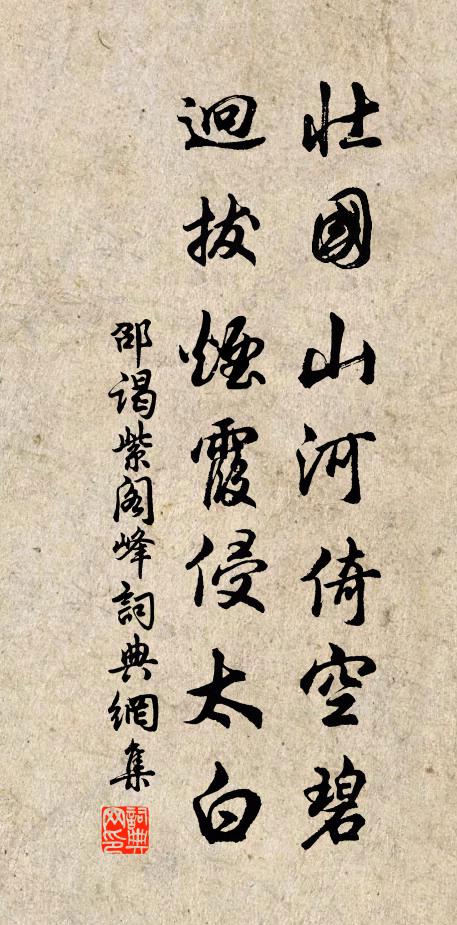 壯國山河倚空碧
迥拔煙霞侵太白
邵謁紫閣峰詞典網集
詞典网印